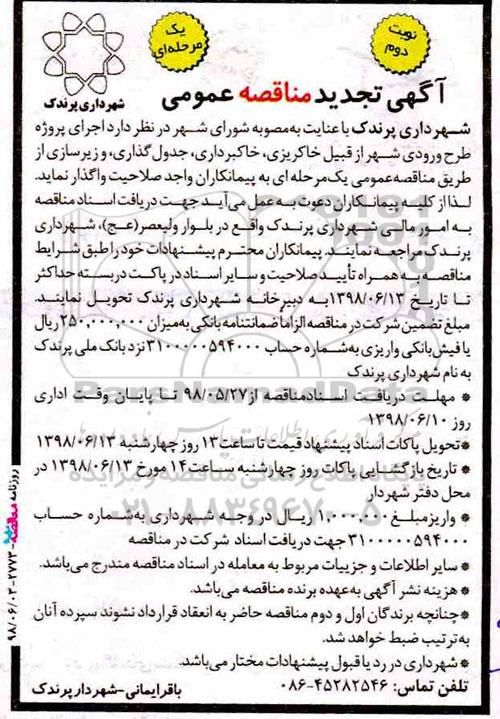 نوبت
دوم
یک
مرحله‌ای
شهرداری پرندک
آگهی تجدید مناقصه عمومی
شهرداری پرندک با عنایت به مصوبه شورای شهر در نظر دارد اجرای پروژه
طرح ورودی شهر از قبیل خاکریزی، خاکبرداری، جدول گذاری، و زیرسازی از
طریق مناقصه عمومی یک مرحله ای به پیمانکاران واجد صلاحیت واگذار نماید.
لذا از کلیه پیمانکاران دعوت به عمل می‌آید جهت دریافت اسناد مناقصه
به امور مالی شهرداری پرندک واقع در بلوار ولیعصر(عج)، شهرداری
پرندک مراجعه نمایند. پیمانکاران محترم پیشنهادات خود را طبق شرایط
مناقصه به همراه تأیید صلاحیت و سایر اسناد در پاکت دربسته حداکثر
تا تاریخ ۱۳۹۸/۰۶/۱۳ به دبیرخانه شهرداری پرندک تحویل نمایند.
مبلغ تضمین شرکت در مناقصه الزاما ضمانتنامه بانکی به میزان ۲۵۰,۰۰۰,۰۰۰ ریال
یا فیش بانکی واریزی به شماره حساب ۳۱۰۰۰۰۰۵۹۴۰۰۰ نزد بانک ملی پرندک
به نام شهرداری پرندک
* مهلت دریافت اسناد مناقصه از ۹۸/۰۵/۲۷ تا پایان وقت اداری
روز ۱۳۹۸/۰۶/۱۰
* تحویل پاکات اسناد پیشنهاد قیمت تا ساعت ۱۳ روز چهارشنبه ۱۳۹۸/۰۶/۱۳
* تاریخ بازگشایی پاکات روز چهارشنبه ساعت ۱۴ مورخ ۱۳۹۸/۰۶/۱۳ در
محل دفتر شهردار
* واریز مبلغ ۱,۰۰۰,۰۰۰ ریال در وجه شهرداری به شماره حساب
۳۱۰۰۰۰۰۵۹۴۰۰۰ جهت دریافت اسناد شرکت در مناقصه
* سایر اطلاعات و جزییات مربوط به معامله در اسناد مناقصه مندرج می‌باشد.
* هزینه نشر آگهی به عهده برنده مناقصه می‌باشد.
* چنانچه برندگان اول و دوم مناقصه حاضر به انعقاد قرارداد نشوند سپرده آنان
به ترتیب ضبط خواهد شد.
* شهرداری در رد یا قبول پیشنهادات مختار می‌باشد.
تلفن تماس: ۴۵۲۸۲۵۴۶-۰۸۶
باقر ایمانی-شهردار پرندک
روزنامه مناقصه-۲۷۷۲-۹۸/۰۶/۰۳
ParsNamadData
۰۲۱-۸۸۳۴۹۶۷۰-۵